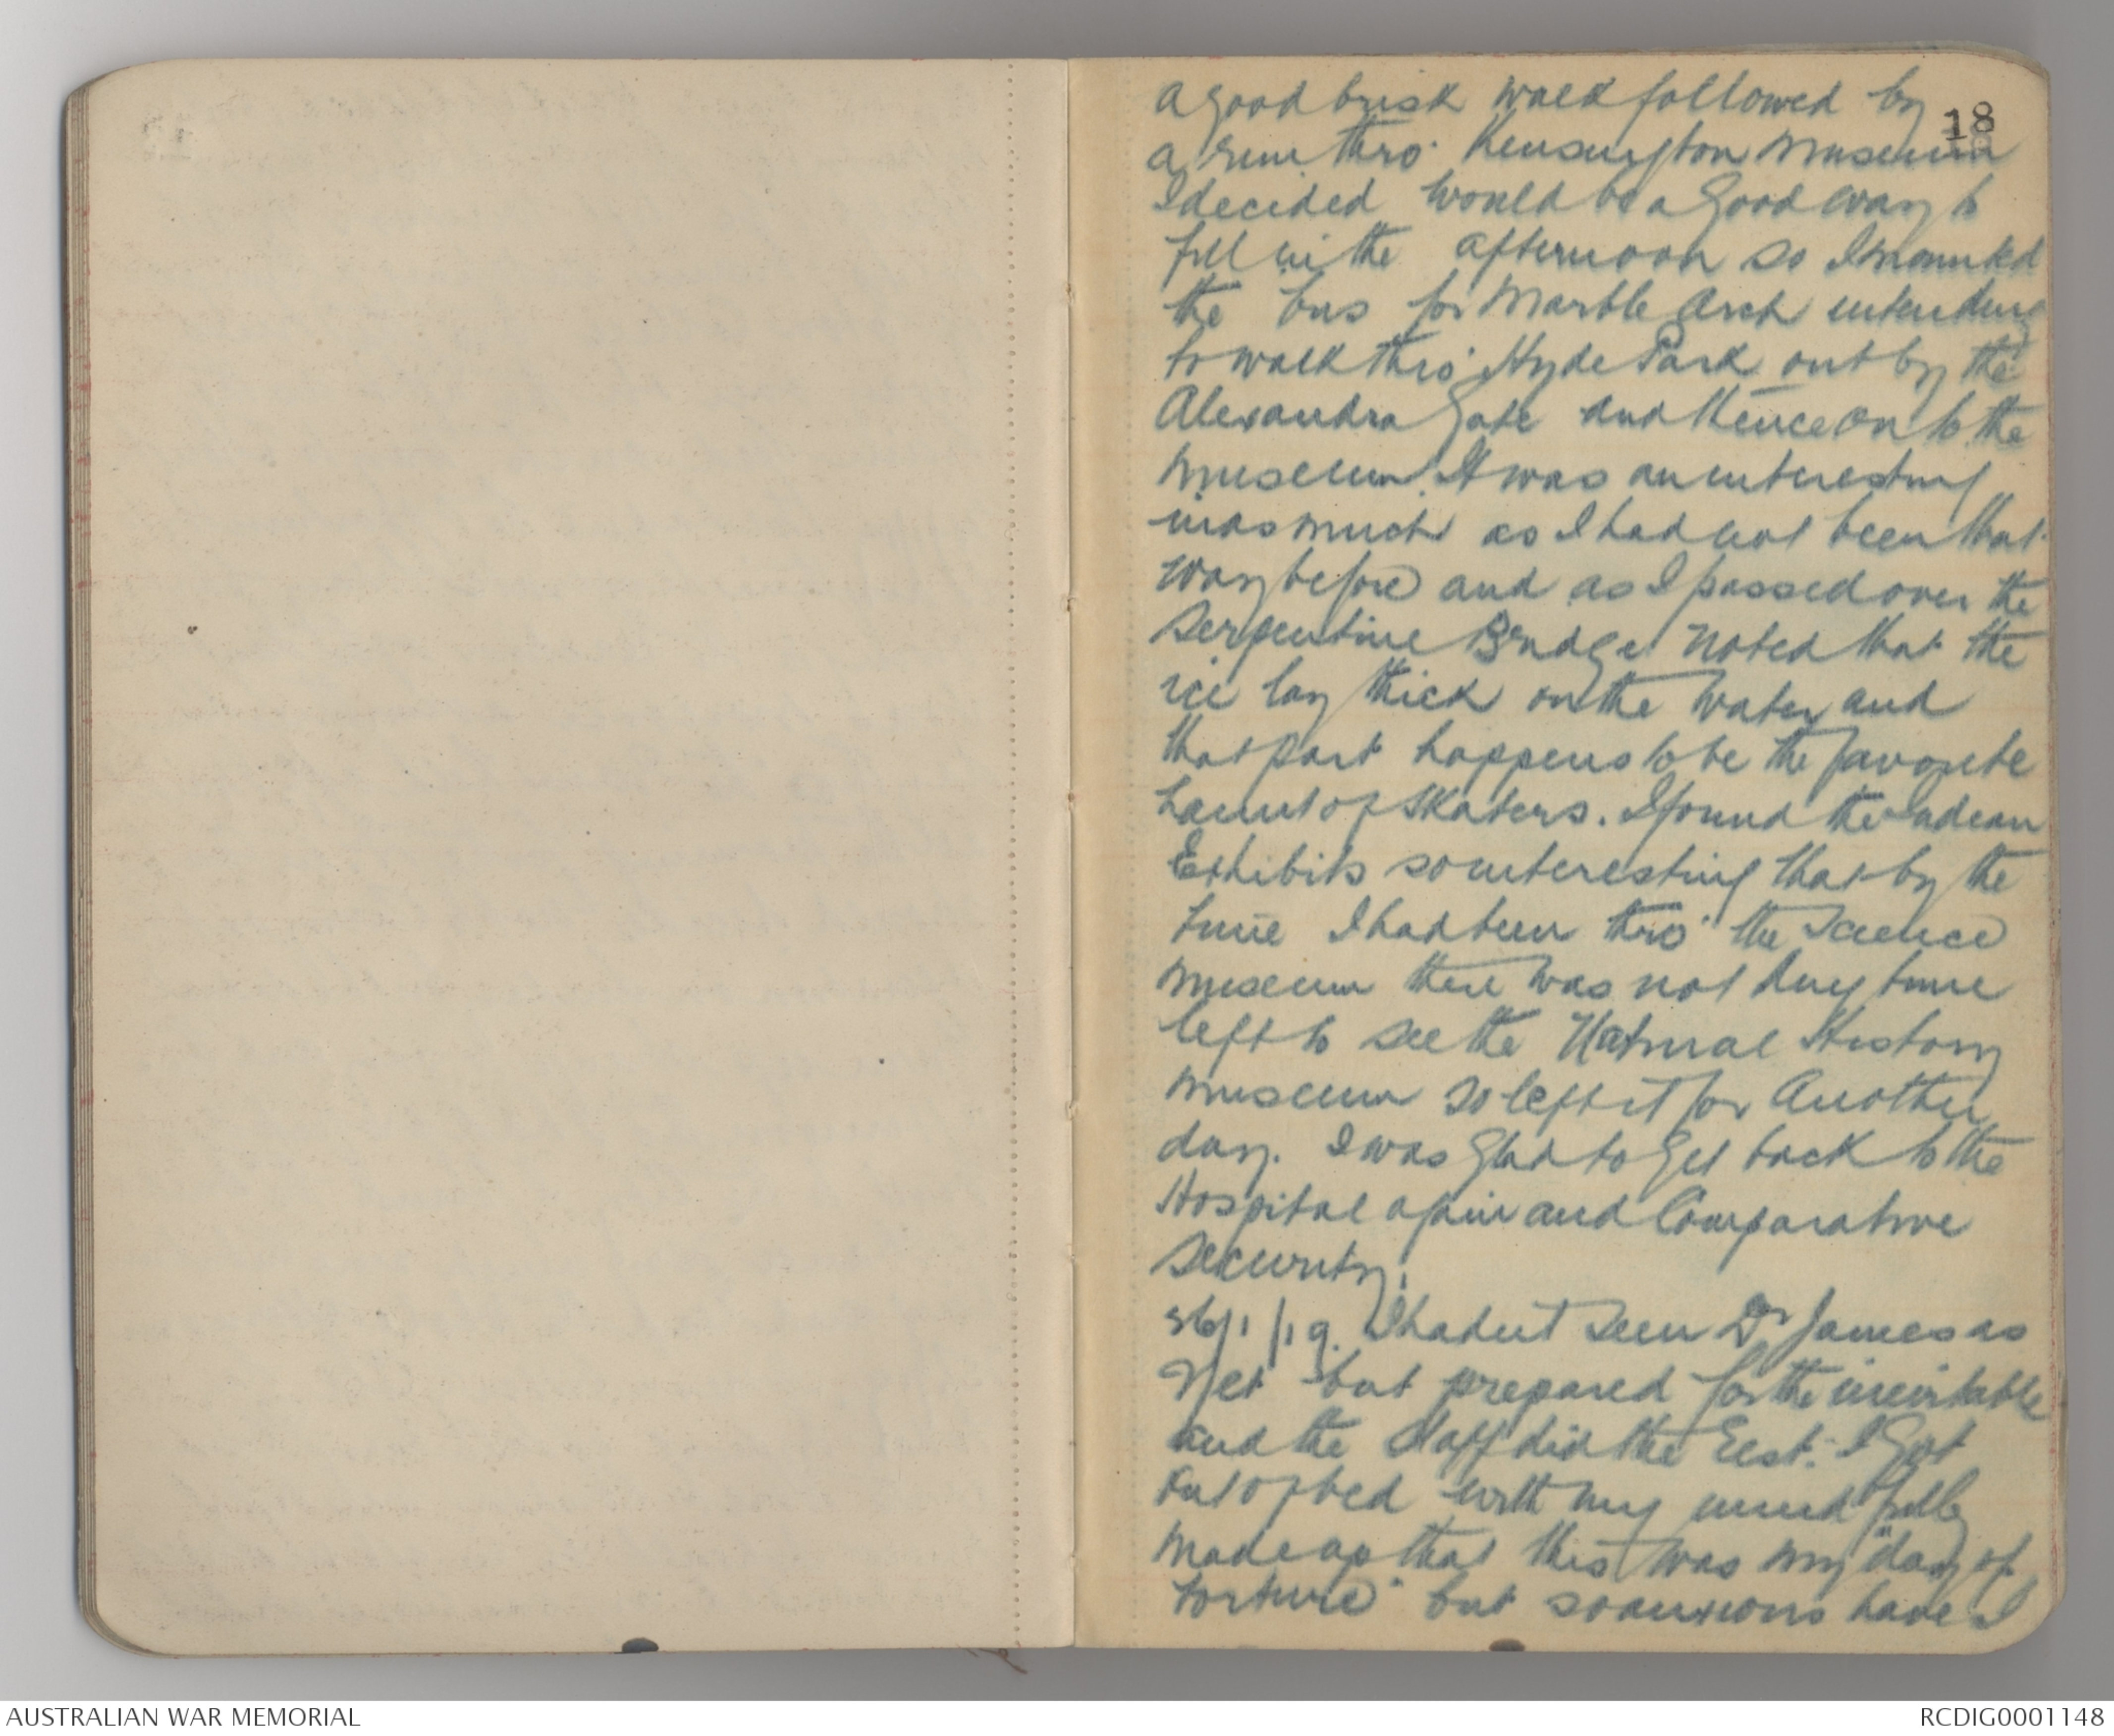 a good brisk walk followed by
18
a run thro' Kensington Museum
I decided would be a good way to
fill in the afternoon so I mounted
the bus for Marble Arch intending
to walk thro' Hyde Park out by the
Alexandra Gate and thence on to the
Museum. It was an interesting
inasmuch as I had not been that
way before and as I passed over the
Serpentine Bridge noted that the
ice lay thick on the water and
that part happens to be the favorite
haunt of skaters. I found the Indian
Exhibits so interesting that by the
time I had been thro' the Science
Museum there was not any time
left to see the Natural History
Museum so left it for another
day. I was glad to get back to the
Hospital again and comparative
security.
26/1/19. I hadn't seen Dr James as
yet but prepared for the inevitable
and the staff did the rest. I got
out of bed with my mind fully
made up that this was my "day of
torture" but so anxious have I
AUSTRALIAN WAR MEMORIAL
RCDIG0001148